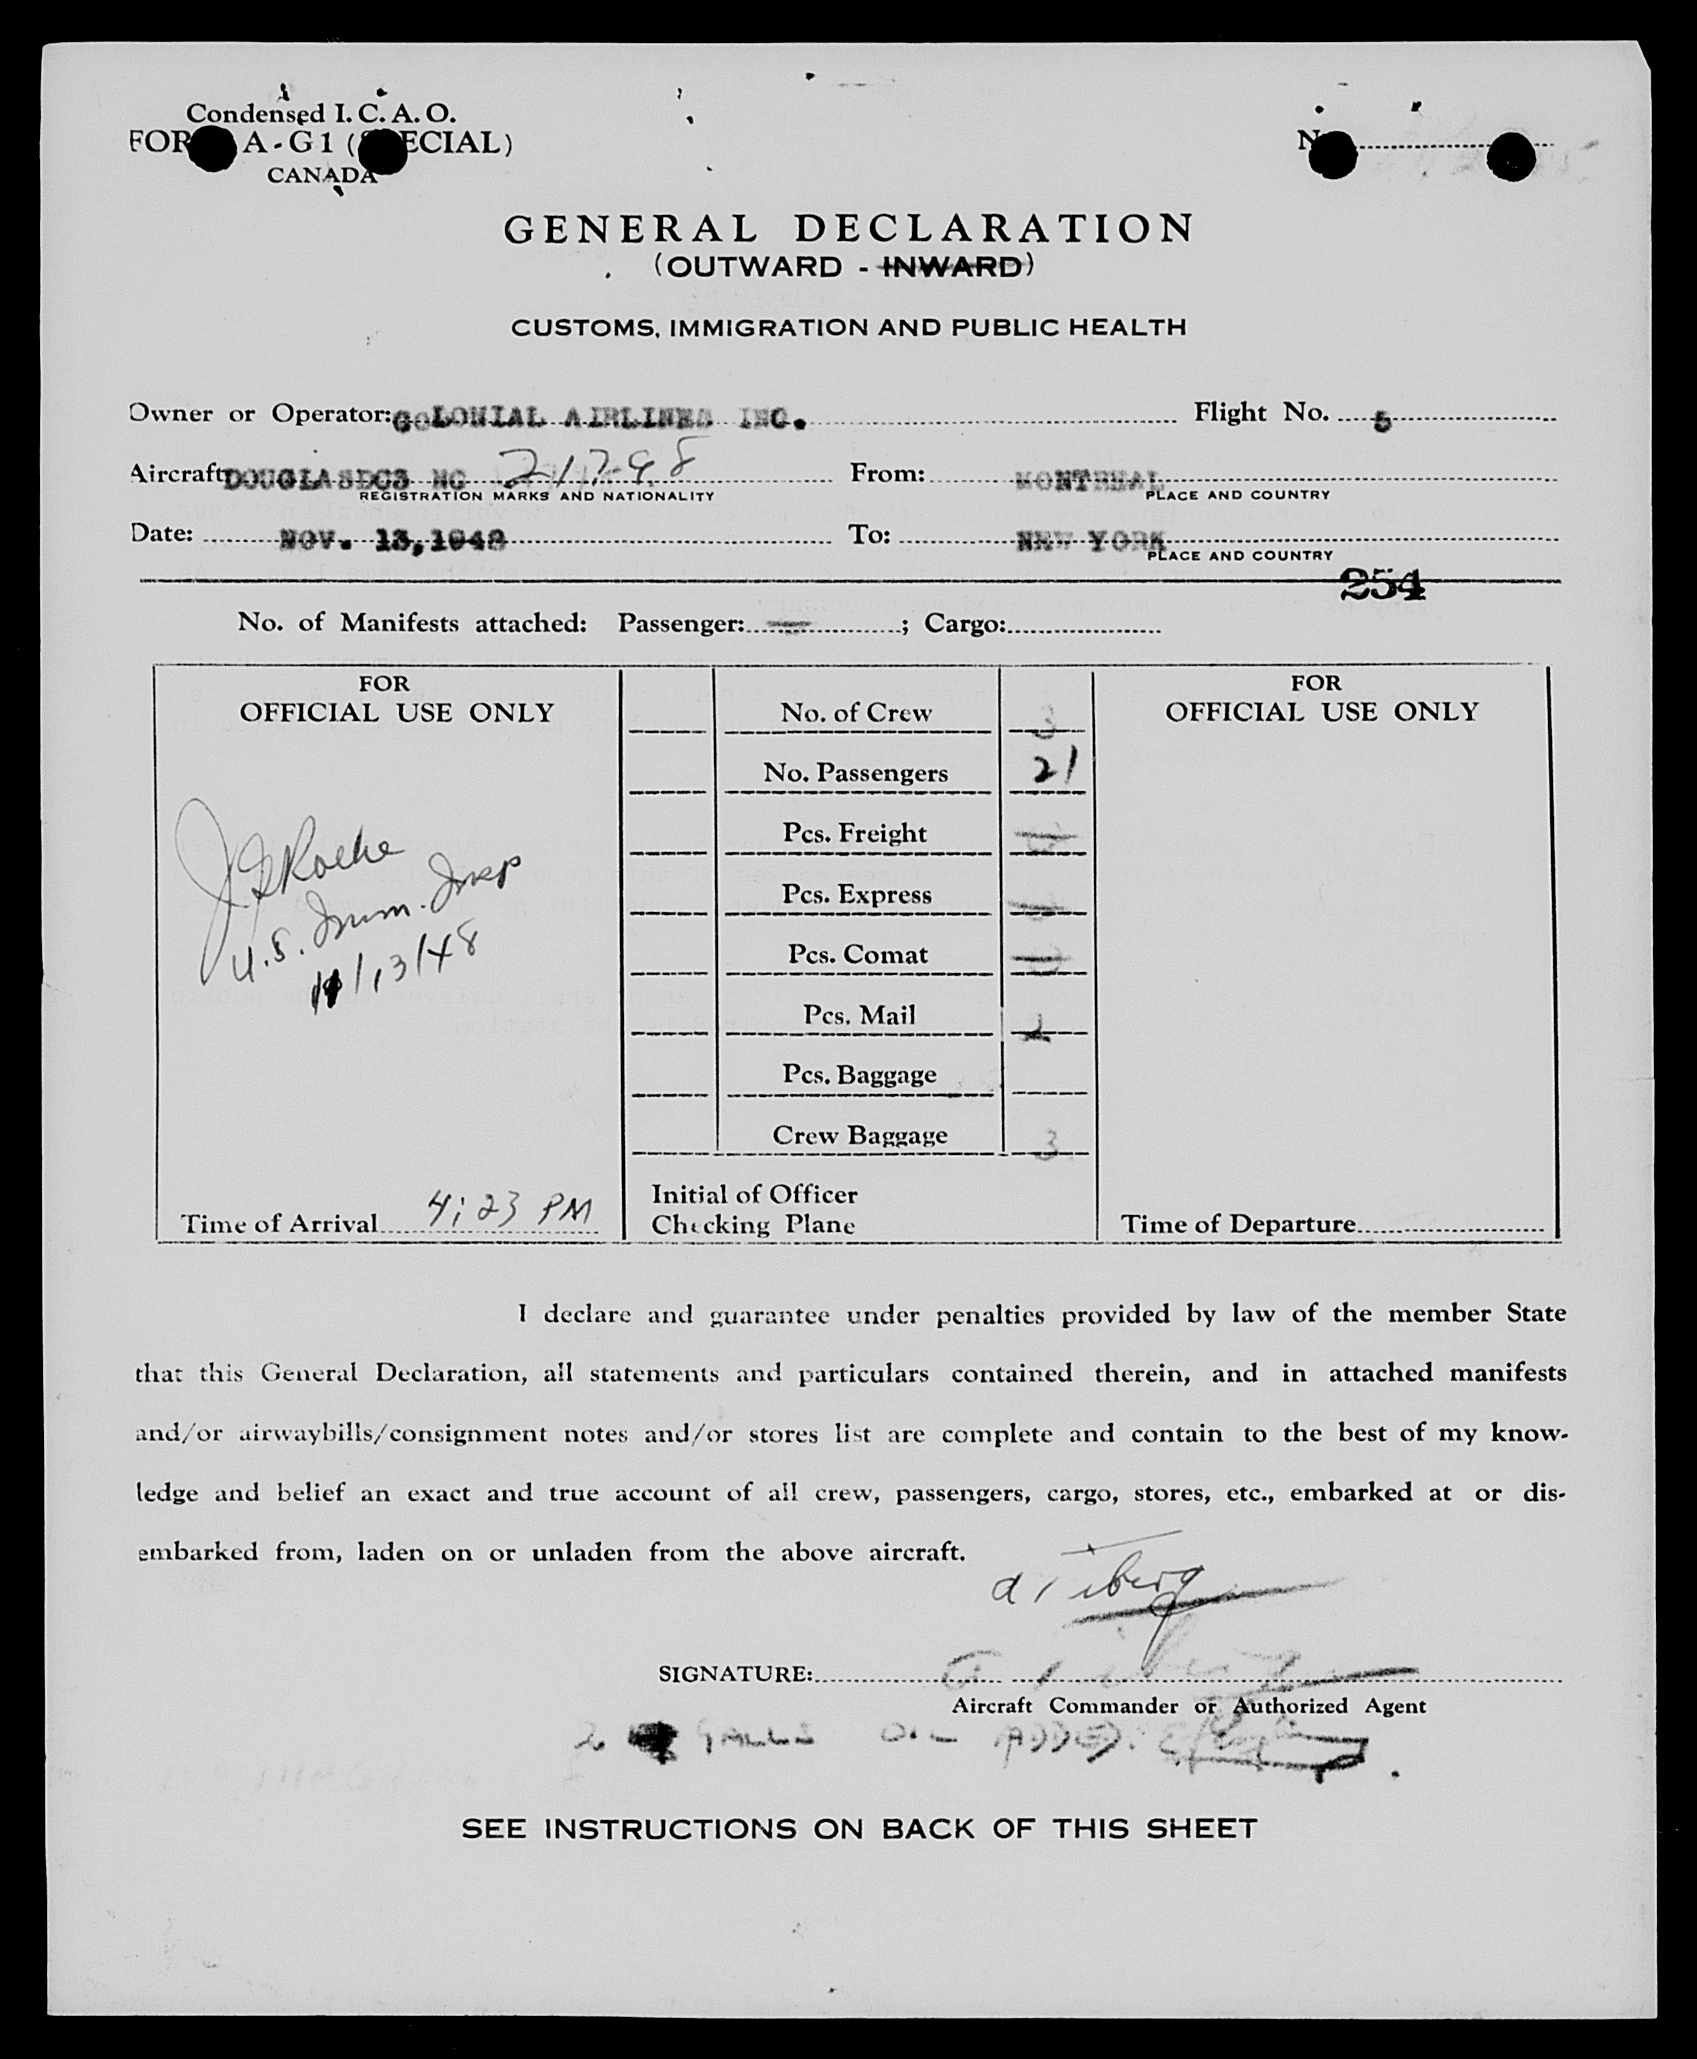 Condensed I. C. A. O.
A - G 1 (SPECIAL)
CANADA
GENERAL DECLARATION
(OUTWARD - INWARD)
CUSTOMS, IMMIGRATION AND PUBLIC HEALTH
Owner or Operator: COLONIAL AIRLINES INC. Flight No. 5
Aircraft DOUGLAS DC3 NC 21798 From: MONTREAL
REGISTRATION MARKS AND NATIONALITY PLACE AND COUNTRY
Date: NOV. 13, 1948 To: NEW YORK
PLACE AND COUNTRY
254
No. of Manifests attached: Passenger: ; Cargo:
FOR
OFFICIAL USE ONLY
J. G. Roche
U.S. Imm. Insp
11/13/48
Time of Arrival 4:23 PM
No. of Crew 3
No. Passengers 21
Pcs. Freight
Pcs. Express
Pcs. Comat
Pcs. Mail
Pcs. Baggage
Crew Baggage 3
Initial of Officer
Checking Plane
FOR
OFFICIAL USE ONLY
Time of Departure
I declare and guarantee under penalties provided by law of the member State
that this General Declaration, all statements and particulars contained therein, and in attached manifests
and/or airwaybills/consignment notes and/or stores list are complete and contain to the best of my know-
ledge and belief an exact and true account of all crew, passengers, cargo, stores, etc., embarked at or dis-
embarked from, laden on or unladen from the above aircraft.
SIGNATURE:
Aircraft Commander or Authorized Agent
GALLS OIL ADDED.
SEE INSTRUCTIONS ON BACK OF THIS SHEET